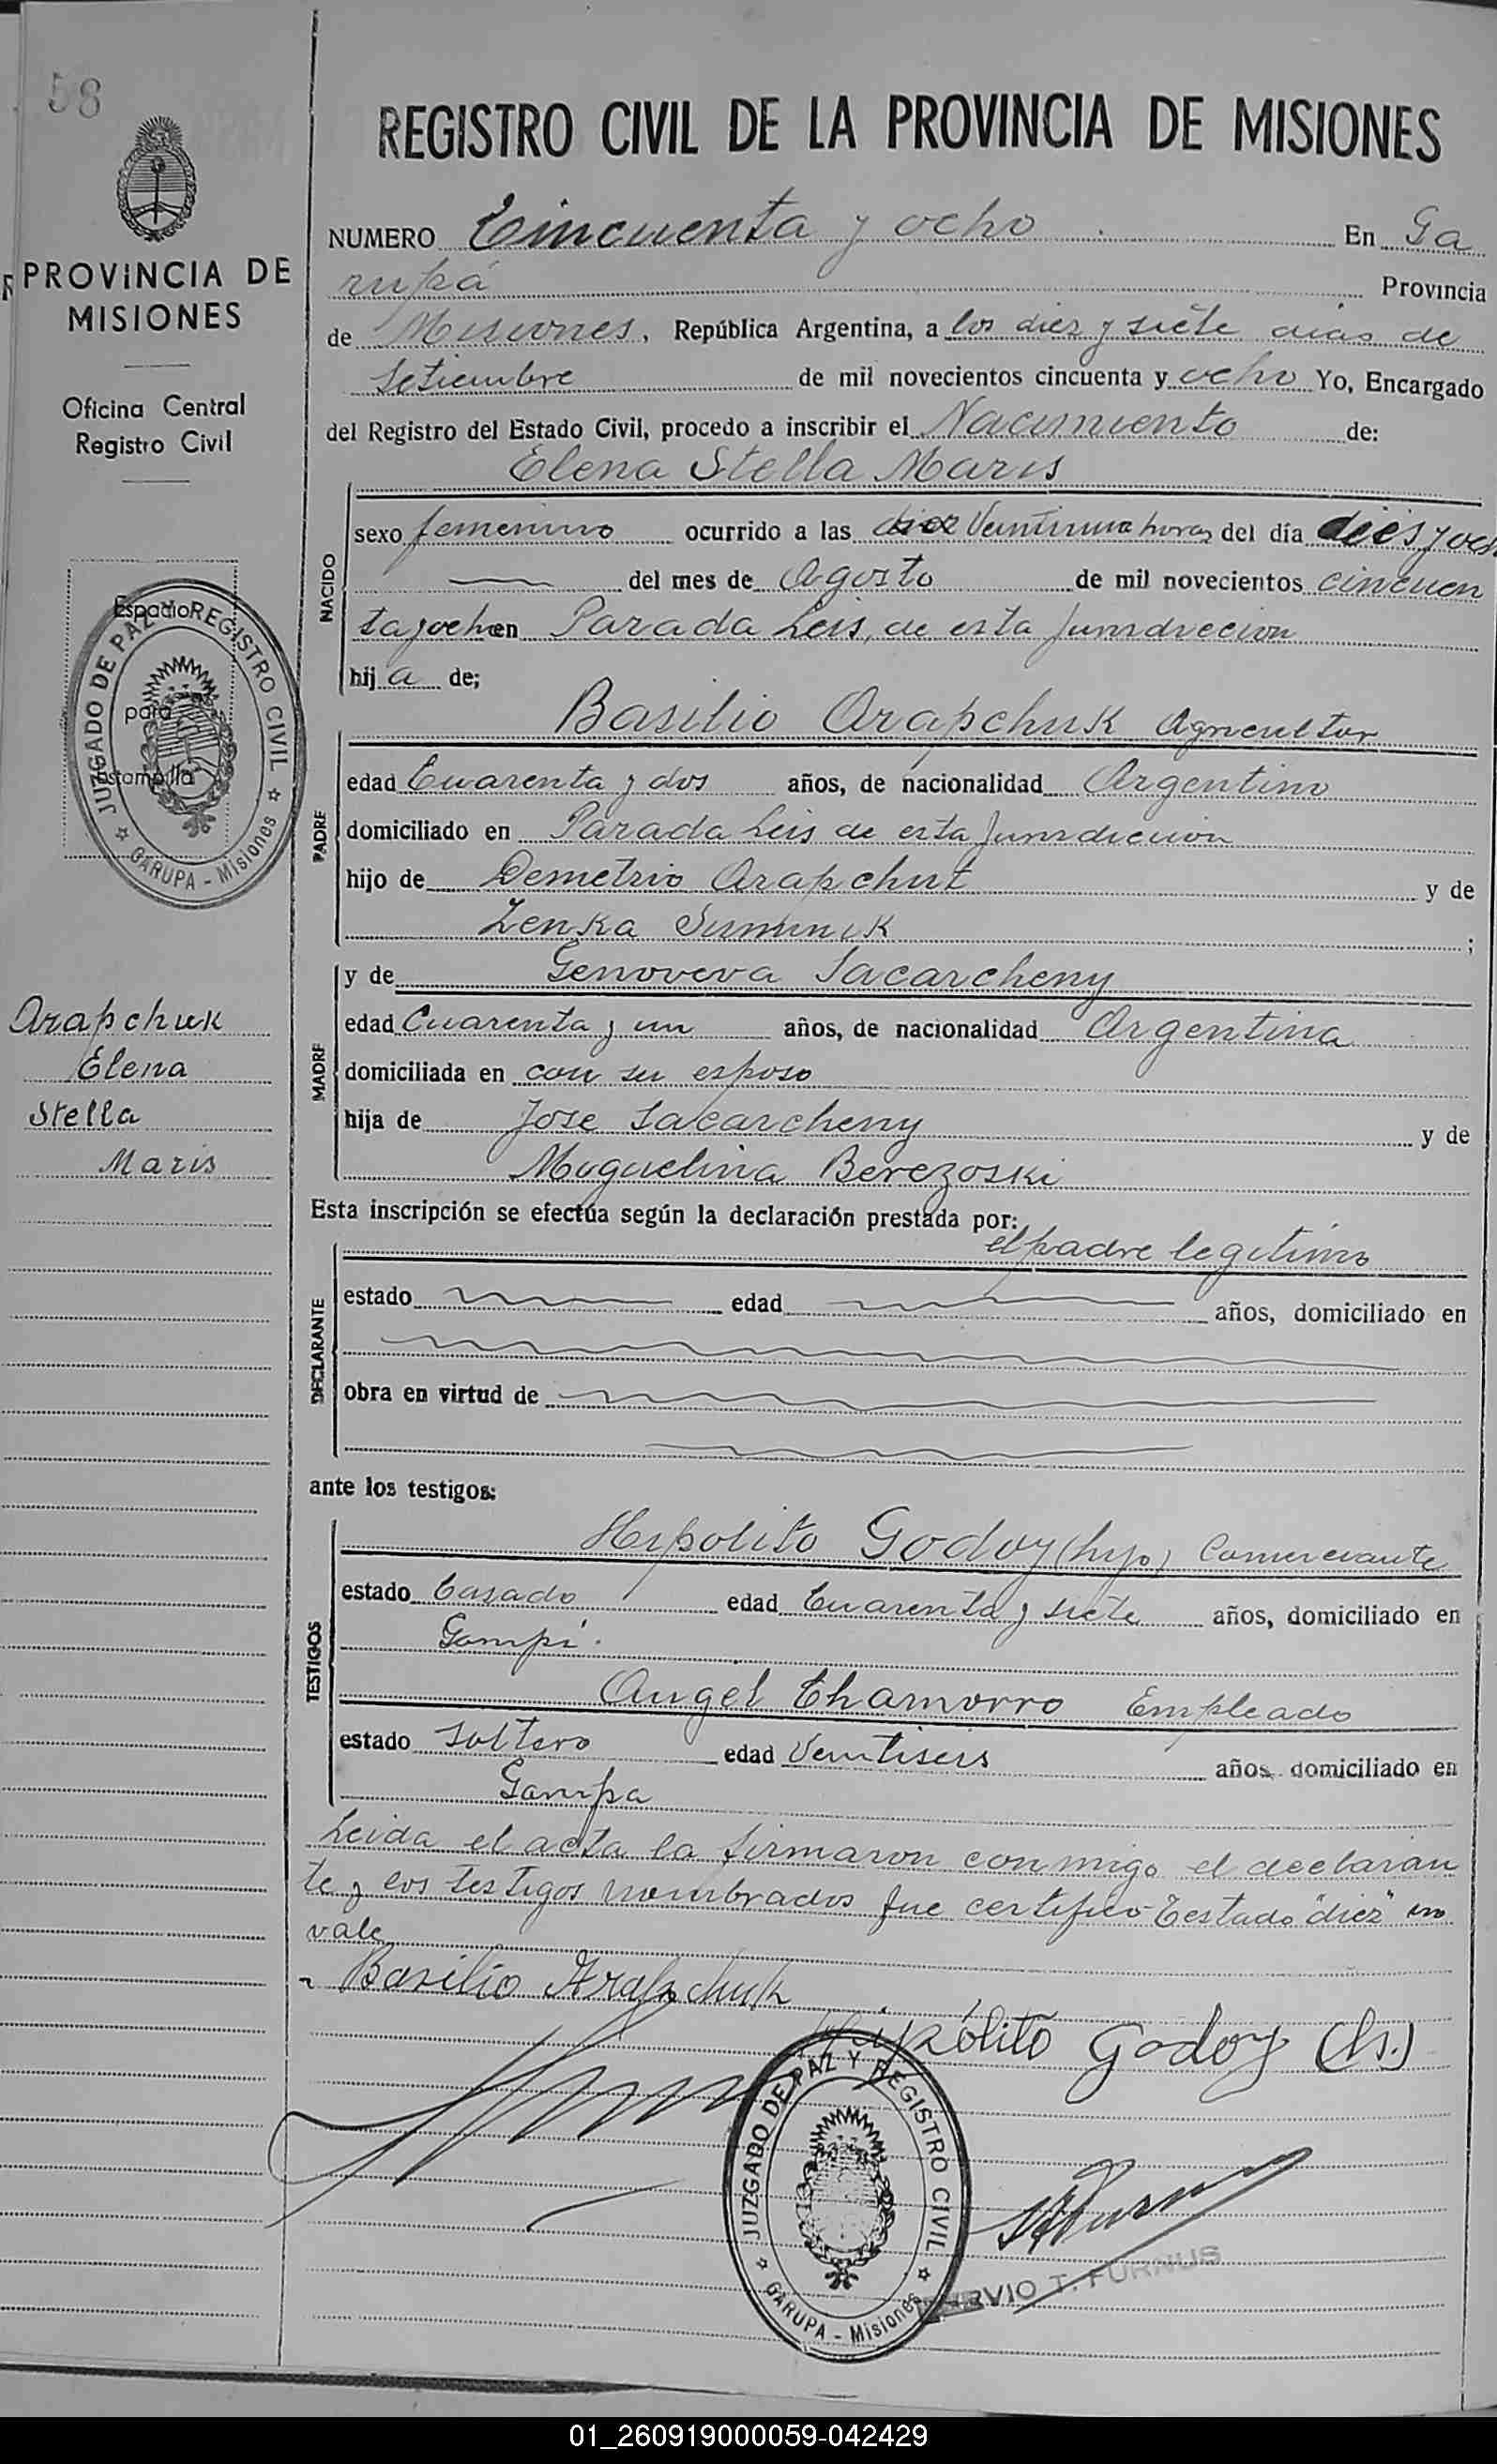 58
REGISTRO CIVIL DE LA PROVINCIA DE MISIONES
PROVINCIA DE
MISIONES
Oficina Central
Registro Civil
NUMERO Cincuenta y ocho En Ga
rupá Provincia
de Misiones, República Argentina, a los diez y siete dias de
Setiembre de mil novecientos cincuenta y ocho Yo, Encargado
del Registro del Estado Civil, procedo a inscribir el Nacimiento de:
Elena Stella Maris
NACIDO
sexo femenino ocurrido a las diez Veintiuna horas del día dies y och
del mes de Agosto de mil novecientos cincuen
ta y ocho en Parada Leis, de esta Jurisdiccion
hij a de;
Espacio
para
Estampilla
JUZGADO DE PAZ Y REGISTRO CIVIL
GARUPA - Misiones
PADRE
Basilio Arapchuk Agricultor
edad Cuarenta y dos años, de nacionalidad Argentino
domiciliado en Parada Leis de esta Jurisdiccion
hijo de Demetrio Arapchuk y de
Zenka ;
MADRE
y de Genoveva Sacarcheny
edad Cuarenta y un años, de nacionalidad Argentina
domiciliada en con su esposo
hija de Jose Sacarcheny y de
Miguelina Berezoski
Arapchuk
Elena
Stella
Maris
Esta inscripción se efectúa según la declaración prestada por:
el padre legitimo
DECLARANTE
estado edad años, domiciliado en
obra en virtud de
ante los testigos:
TESTIGOS
Hipolito Godoy (hijo) Comerciante
estado Casado edad Cuarenta y siete años, domiciliado en
Garupá.
Angel Chamorro Empleado
estado Soltero edad Veintiseis años, domiciliado en
Garupa
Leida el acta la firmaron conmigo el declaran
te y los testigos nombrados que certifico Testado "diez" no
vale
Basilio Arapchuk
Hipólito Godoy (h.)
JUZGADO DE PAZ Y REGISTRO CIVIL
GARUPA - Misiones
T. FURNUS
01_260919000059-042429